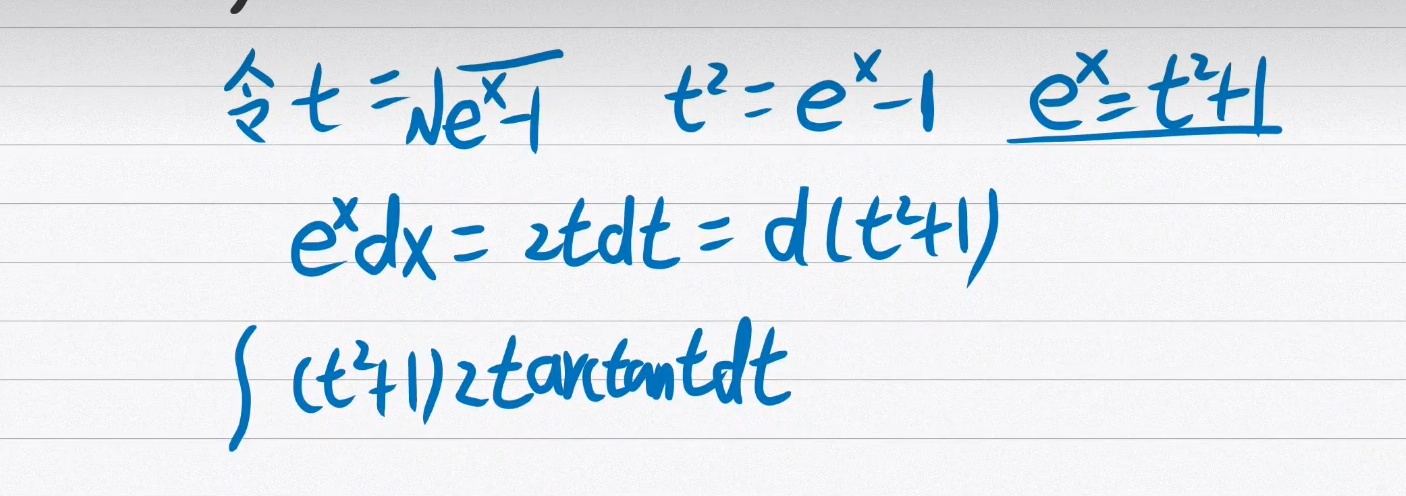 令 t = √(eˣ-1)  t² = eˣ-1  eˣ = t²+1
eˣdx = 2tdt = d(t²+1)
∫ (t²+1)2tarctantdt